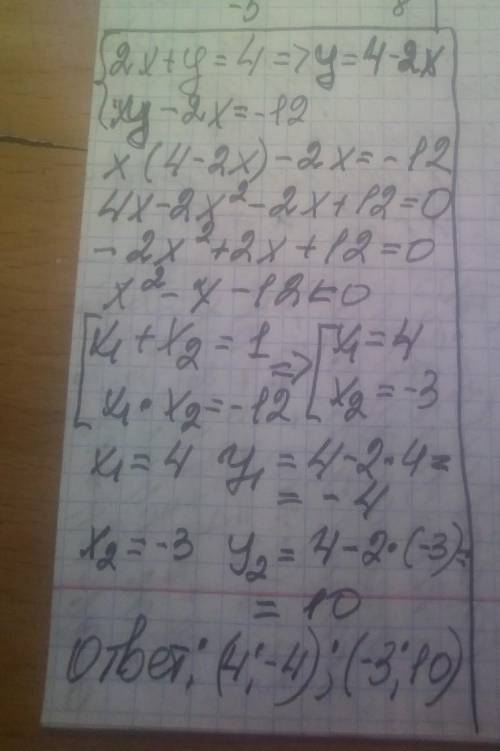 -5 8
{2x+y=4=>y=4-2x
{xy-2x=-12
x(4-2x)-2x=-12
4x-2x²-2x+12=0
-2x²+2x+12=0
x²-x-12=0
[x₁+x₂=1 => [x₁=4
x₁•x₂=-12 x₂=-3
x₁=4 y₁=4-2•4=
=-4
x₂=-3 y₂=4-2•(-3)=
=10
Ответ: (4;-4);(-3;10)